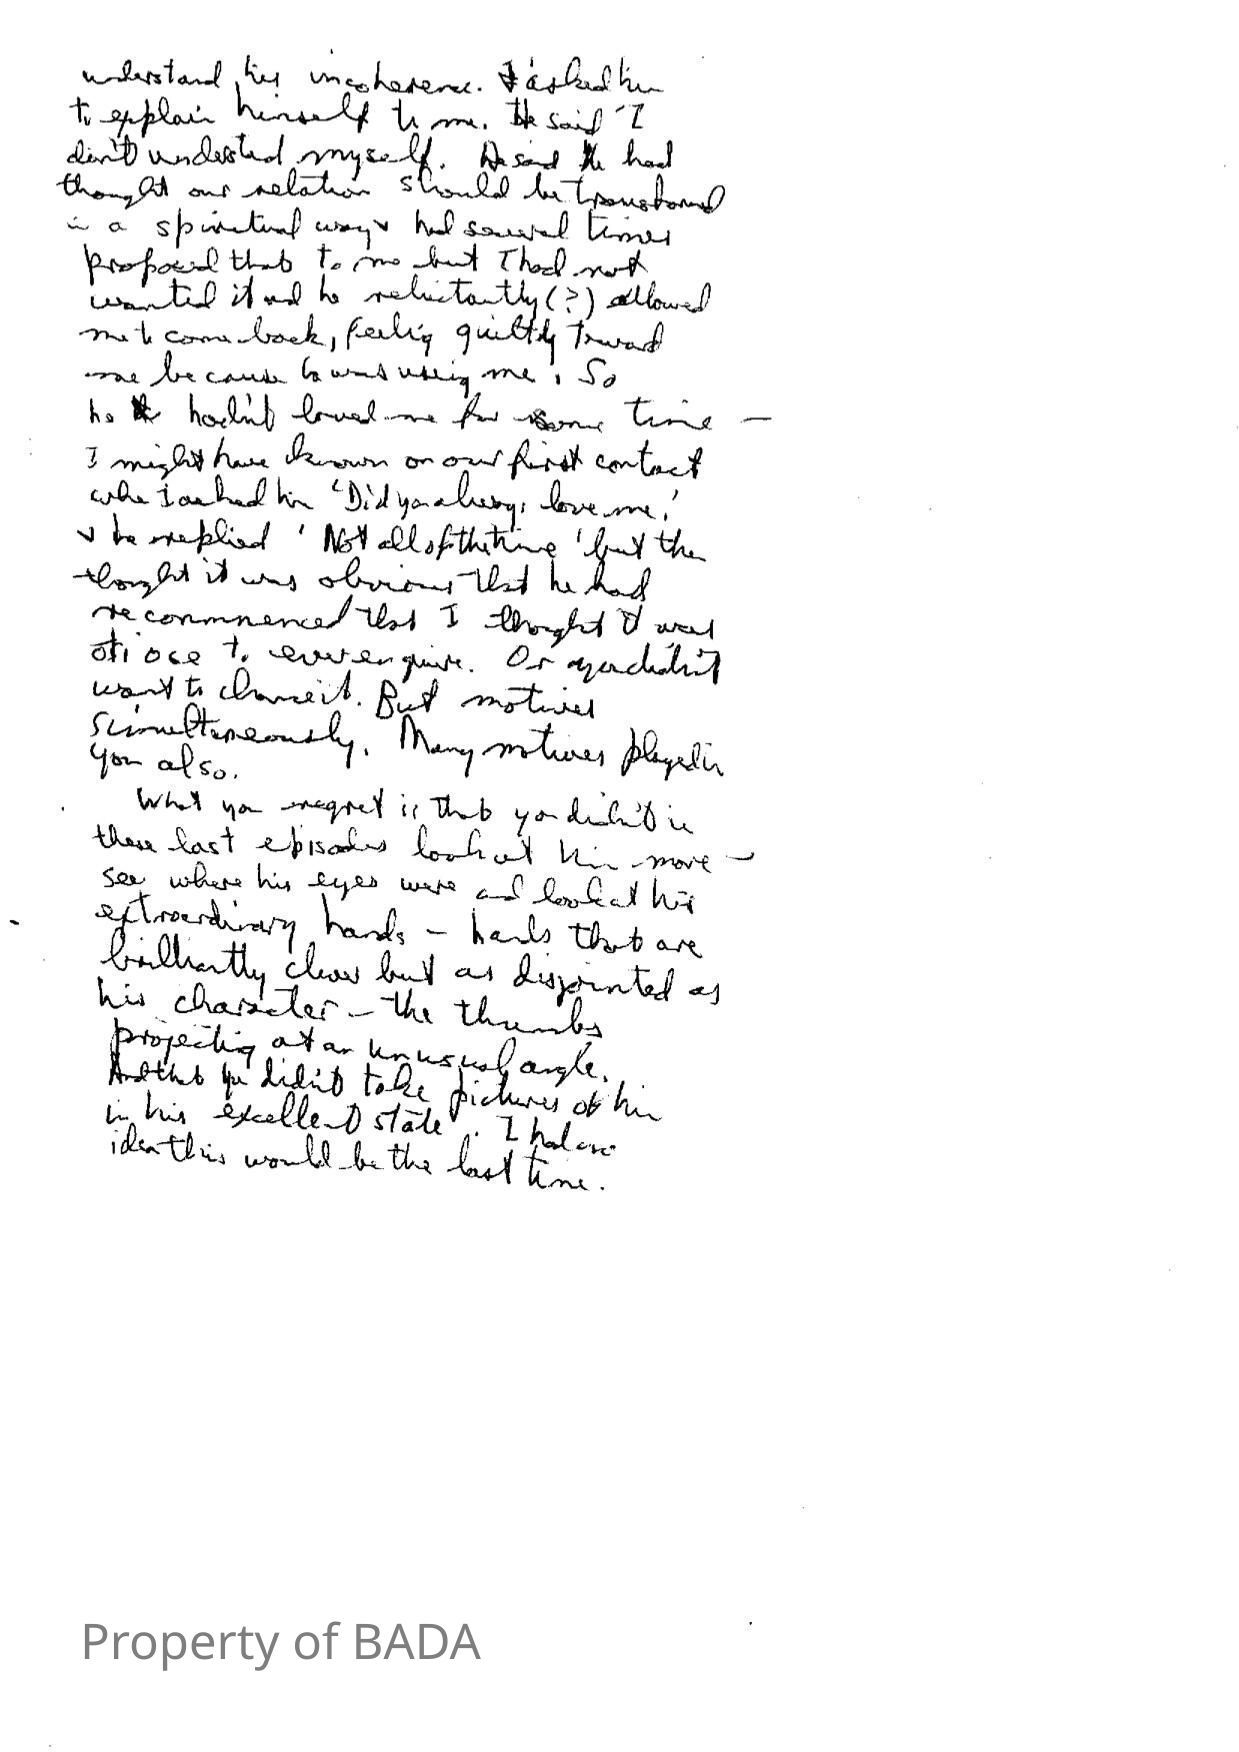 understand his incoherence. I asked him
to explain himself to me. He said 'I
don't understand myself. He said he had
thought our relation should be transformed
in a spiritual way & had several times
proposed that to me but I had not
wanted it and he reluctantly (?) allowed
me to come back, feeling guiltily toward
me because he was using me. So
he hadn't loved me for some time —
I might have known on our first contact
when I asked him 'Did you always love me,'
& he replied 'Not all of the time' but the
thought it was obvious that he had
recommenced that I thought it was
otiose to ever enquire. Or you didn't
want to chance it. But motives
simultaneously. Many motives played in
you also.
What you regret is that you didn't in
these last episodes look at him more —
see where his eyes were and look at his
extraordinary hands — hands that are
brilliantly clear but as disjointed as
his character — the thumbs
projecting at an unusual angle.
And that you didn't take pictures of him
in his excellent state. I had no
idea this would be the last time.
Property of BADA